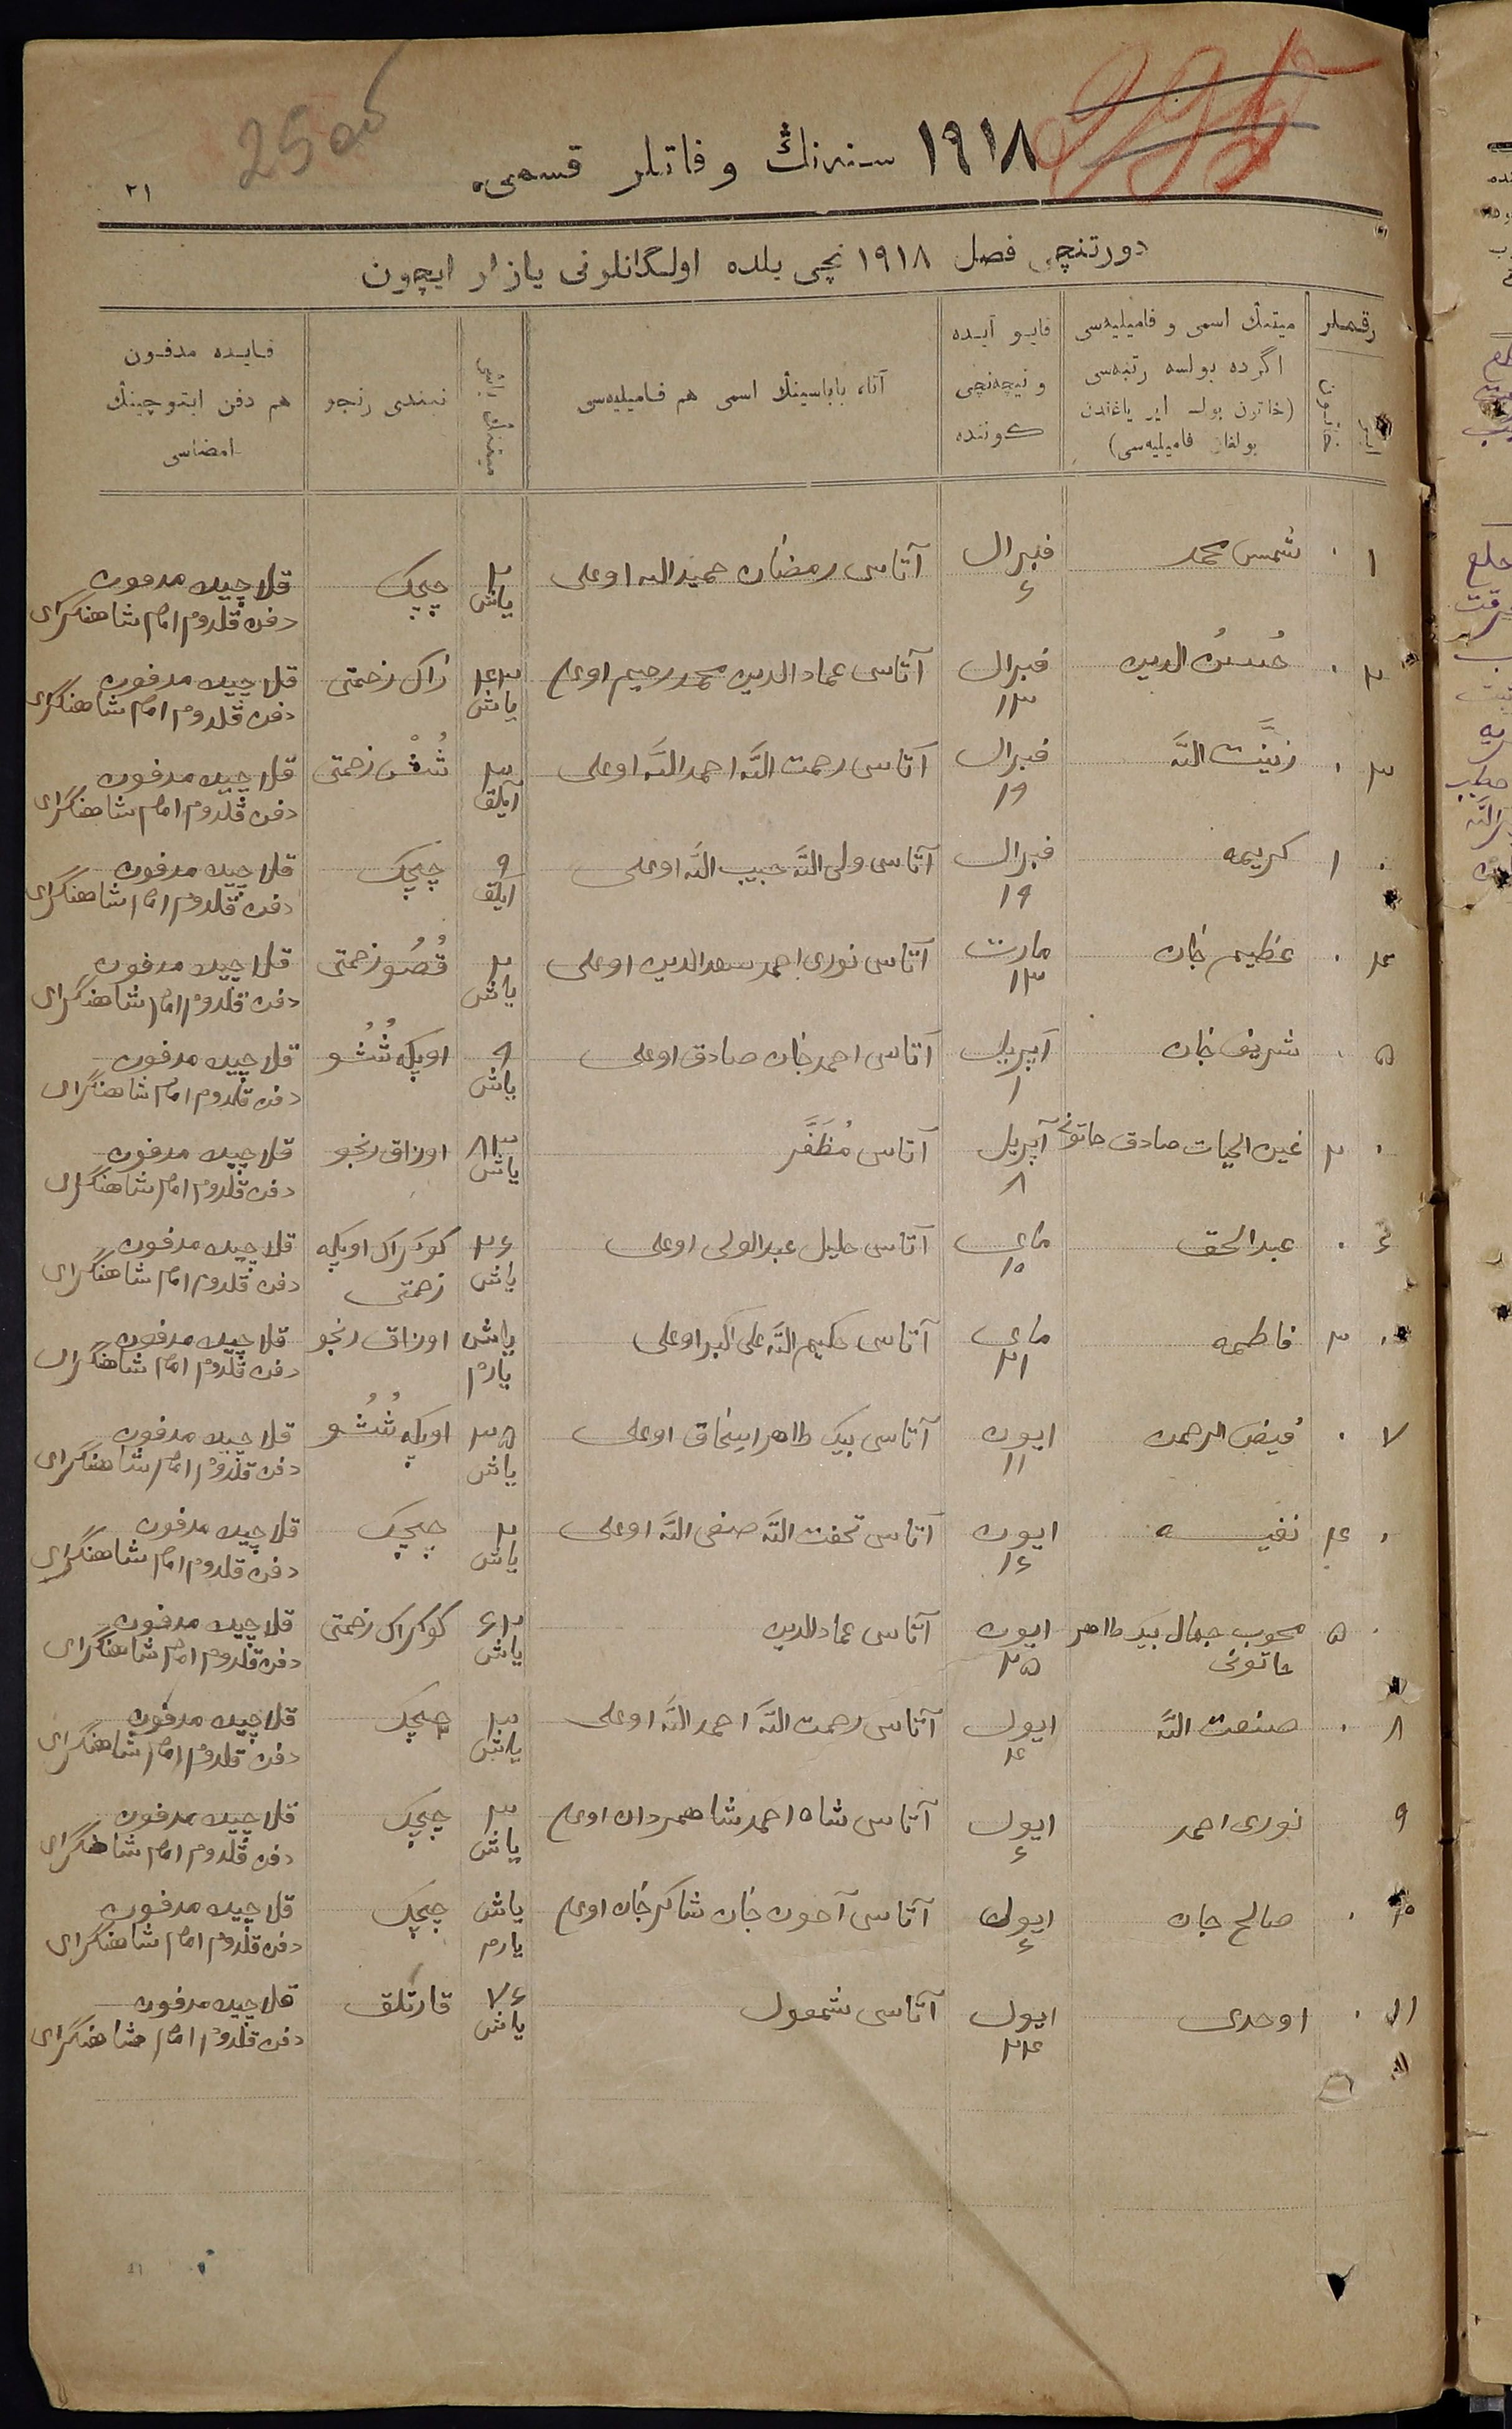 2500
١٩١٨ سنەنڭ وفاتلر قسمی.
٢١
دورتنچی فصل ١٩١٨ نچی یلده اولگانلرنی یازار ایچون
رقملر
میتنڭ اسمی و فامیلیەسی اگرده بولسه رتبەسی (خاتون بولسە ایر یاغندن بولغان فامیلیەسی)
قایو آیده و نیچەنچی کوننده
آتا، باباسینڭ اسمی هم فامیلیەسی
میتنڭ یاشی
نیندی رنجو
قایده مدفون هم دفن ایتوچینڭ امضاسی
١ ٠ شمس محمد فبرال ٤ آتاسی رمضان حمیدالله اوغلی ٢ یاش چیچک قلاچیده مدفون
دفن قلدوم امام شاهنگرای
٢ ٠ حسن الدین فبرال ١٣ آتاسی عماد الدین محمد رحیم اوغلی ٢٤٣ یاش زاک زحمتی قلاچیده مدفون
دفن قلدوم امام شاهنگرای
٣ ٠ زینت الله فبرال ١٩ آتاسی رحمت الله احمد الله اوغلی ٣ آیلق زحمتی قلاچیده مدفون
دفن قلدوم امام شاهنگرای
٠ ١ کریمه فبرال ١٩ آتاسی ولی الله حبیب الله اوغلی ٩ آیلق چیچک قلاچیده مدفون
دفن قلدوم امام شاهنگرای
٤ ٠ عظیم خان مارت ١٣ آتاسی نوری احمد سعد الدین اوغلی ٢ یاش قُصُو زحمتی قلاچیده مدفون
دفن قلدوم امام شاهنگرای
٥ ٠ شریف خان آپریل ١ آتاسی احمد خان صادق اوغلی ٩ یاش اوپکه شُشُو قلاچیده مدفون
دفن قلدوم امام شاهنگرای
٠ ٢ عین الحیات صادق خاتونی آپریل ٨ آتاسی مُظَفَّر ٨٣ یاش اوزاق رنجو قلاچیده مدفون
دفن قلدوم امام شاهنگرای
٦ ٠ عبد الحق مای ١٥ آتاسی خلیل عبد الولی اوغلی ٢٦ یاش کوکراک اوپکه زحمتی قلاچیده مدفون
دفن قلدوم امام شاهنگرای
٠ ٣ فاطمه مای ٢١ آتاسی حکیم الله علی اکبر اوغلی یاش یارم اوزاق رنجو قلاچیده مدفون
دفن قلدوم امام شاهنگرای
٧ ٠ فیض الرحمن ایون ١١ آتاسی بیک طاهر اسحاق اوغلی ٢٥ یاش اوپکه شُشُو قلاچیده مدفون
دفن قلدوم امام شاهنگرای
٠ ٤ نفیسه ایون ١٦ آتاسی تحفت الله صنعی الله اوغلی ٢ یاش چیچک قلاچیده مدفون
دفن قلدوم امام شاهنگرای
٠ ٥ محبوب جمال بیک طاهر خاتونی ایون ٢٥ آتاسی عماد الدین ٦٢ یاش کوکراک زحمتی قلاچیده مدفون
دفن قلدوم امام شاهنگرای
٨ ٠ صنعت الله ایول ٤ آتاسی رحمت الله احمد الله اوغلی ٣ یاش چیچک قلاچیده مدفون
دفن قلدوم امام شاهنگرای
٩ نوری احمد ایول ٤ آتاسی شاه احمد شاهمردان اوغلی ٣ یاش چیچک قلاچیده مدفون
دفن قلدوم امام شاهنگرای
١٠ ٠ صالح جان ایول ٤ آتاسی آخون خان شاکر خان اوغلی یاش یارم چیچک قلاچیده مدفون
دفن قلدوم امام شاهنگرای
١١ ٠ اوحدی ایول ٢٤ آتاسی شمعول ٧٦ یاش قارتلق قلاچیده مدفون
دفن قلدوم امام شاهنگرای